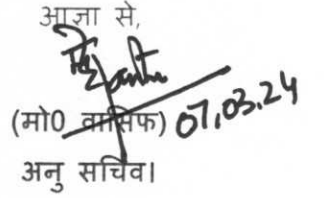 आज्ञा से,
(मो0 वासिफ) 07.03.24
अनु सचिव।